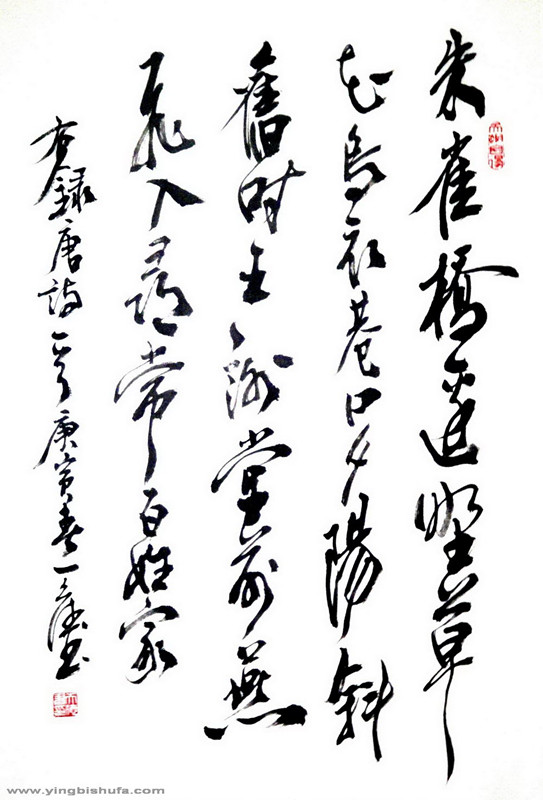 朱雀橋邊野草
花烏衣巷口夕陽斜
舊時王謝堂前燕
飛入尋常百姓家
右錄唐詩一首庚寅春一書
www.yingbishufa.com